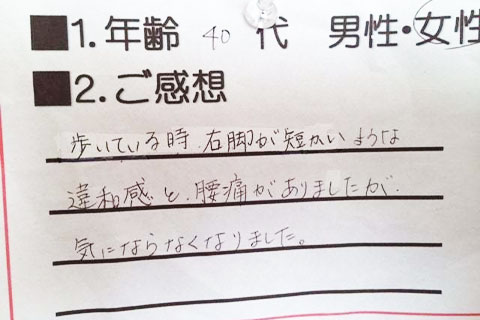 ■1.年齢 40 代 男性・女性
■2.ご感想
歩いている時、右脚が短かいような
違和感と、腰痛がありましたが、
気にならなくなりました。